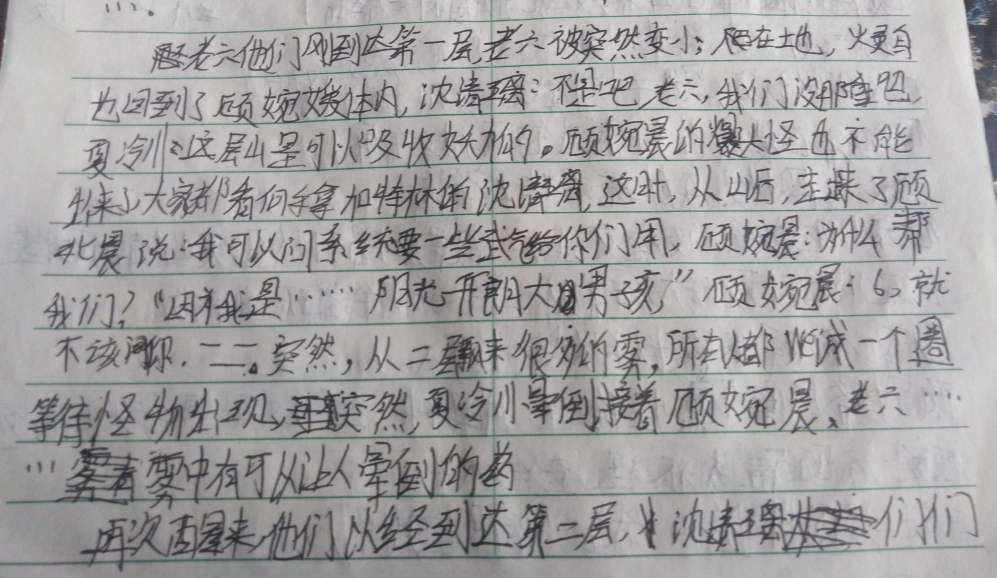 …。
老六他们刚到达第一层,老六被突然变小,在土地,火灵自
也回到了顾婉晨体内,沈清璃:不是吧,老六,我们没那
夏冷川:这层山是可以吸收妖力的。顾婉晨的爆头怪也不能
出来了,大家都看向手拿加特林的沈清璃,这时,从山后,走来了顾
北晨说:我可以问系统要一些武器给你们用,顾婉晨:为什么帮
我们?“因为我是……阳光开朗大男孩”顾婉晨:6,就
不该问你.二二。突然,从二层飘来很多的雾,所有人都围成一个圈
等待怪物出现,突然,夏冷川晕倒,接着顾婉晨、老六…
…雾中有可以让人晕倒的药
再次醒来,他们以经到达第二层,沈清璃们们